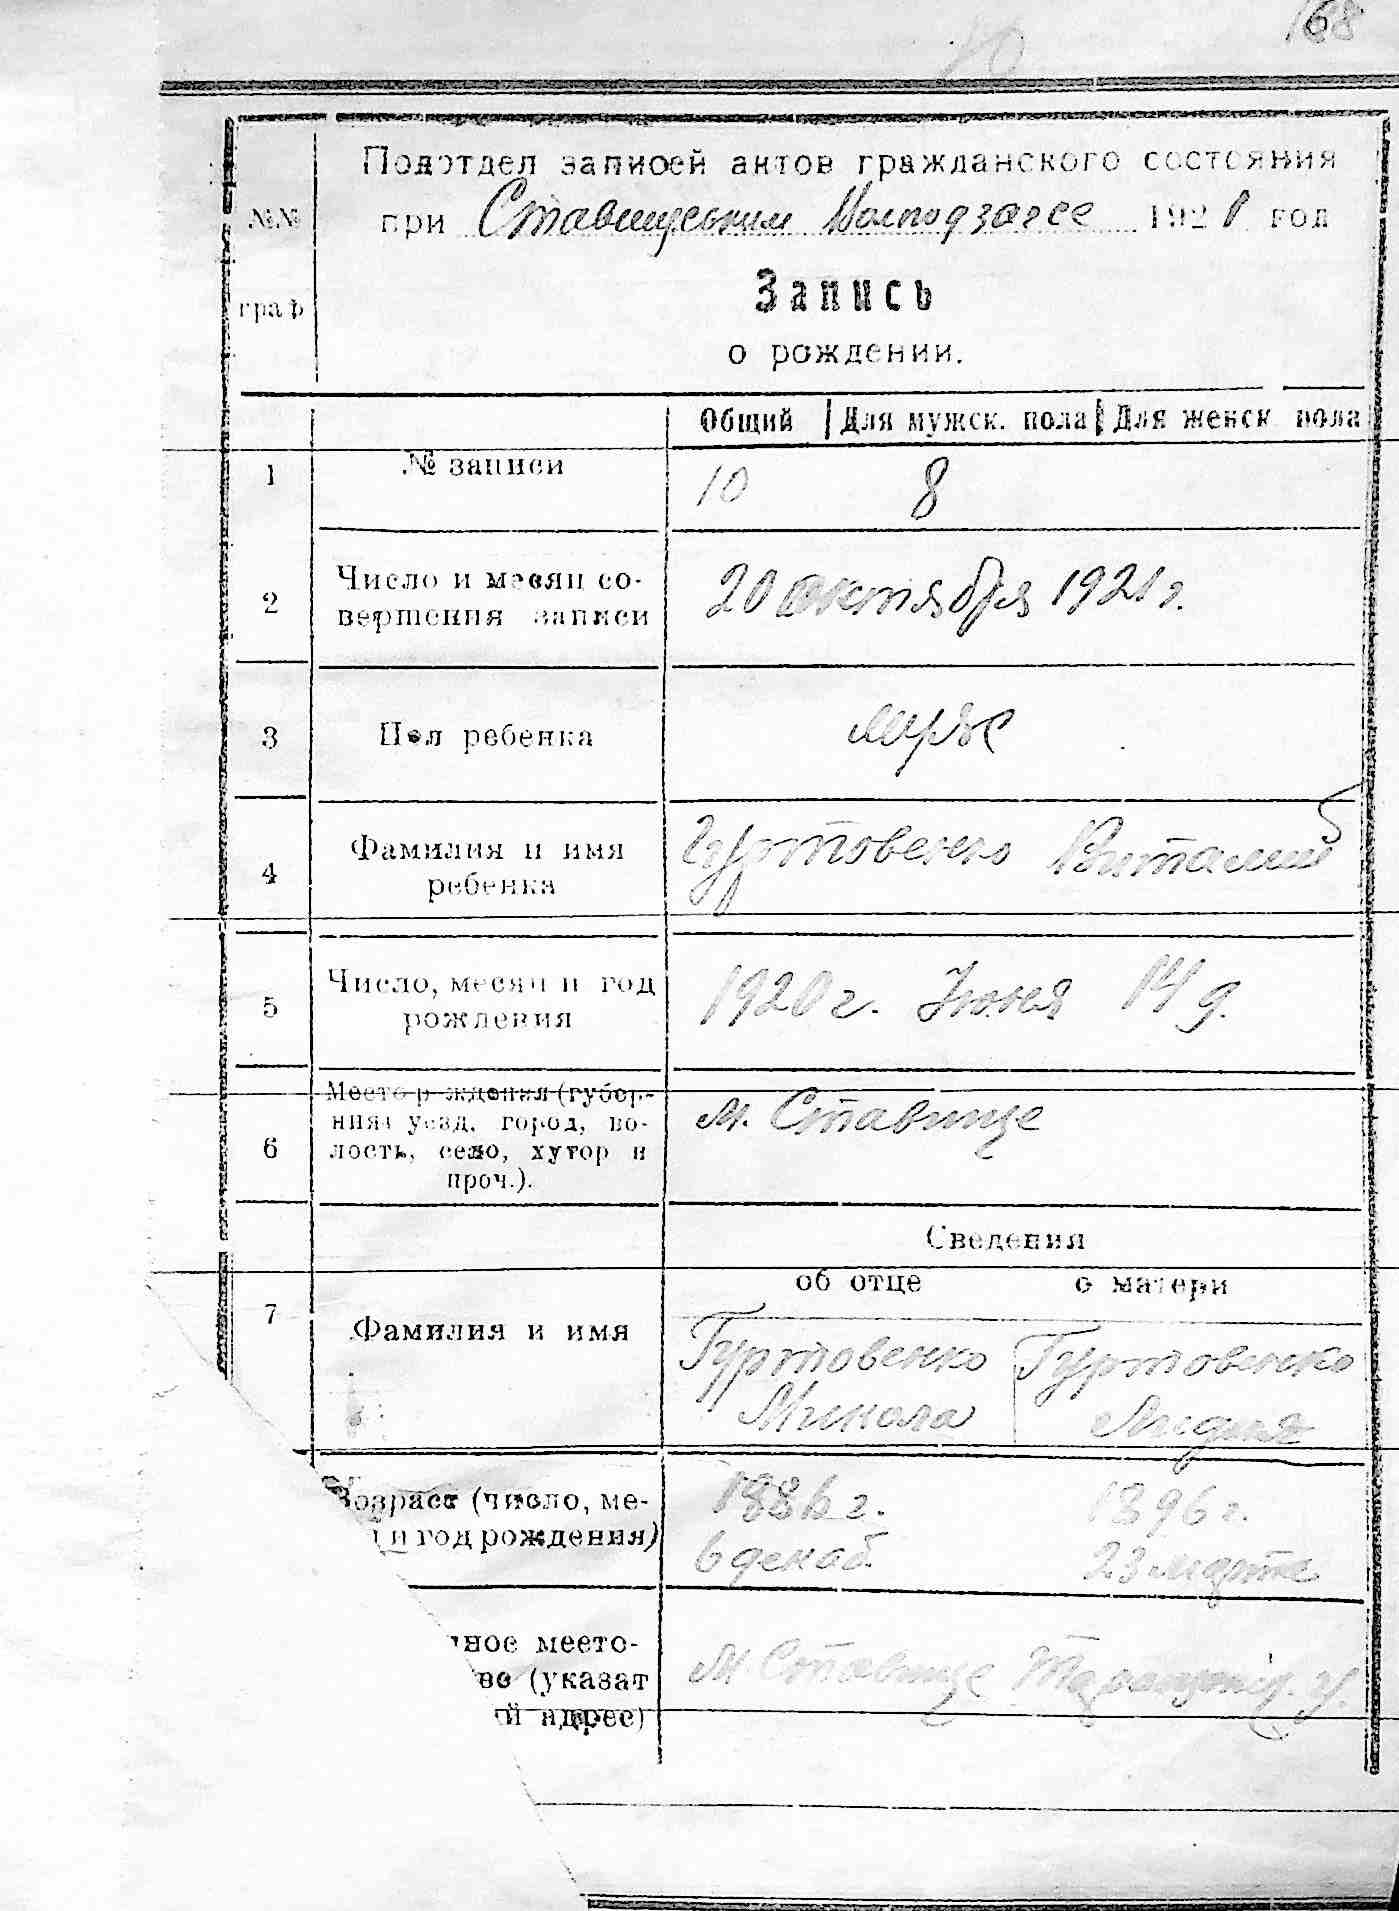 168
10
Подотдел записей актов гражданского состояния
№№ при Ставищеським Волподзагсе 1921 год
граф
Запись
о рождении.
Общий Для мужск. пола Для женск. пола
1 № записи 10 8
2 Число и месяц со-
вершения записи
20 октября 1921 г.
3 Пол ребенка муж
4 Фамилия и имя
ребенка
Гуртовенко Виталий
5 Число, месяц и год
рождения
1920 г. Июня 14 д.
6 Место рождения (губер-
ния, уезд, город, во-
лость, село, хутор и
проч.).
м. Ставище
Сведения
об отце о матери
7 Фамилия и имя
Гуртовенко Гуртовенко
Микола Лидия
Возраст (число, ме-
и год рождения)
1886 г. 1896 г.
6 декаб. 23 марта
нное место-
во (указат
й адрес)
м. Ставище Таращанск. у.